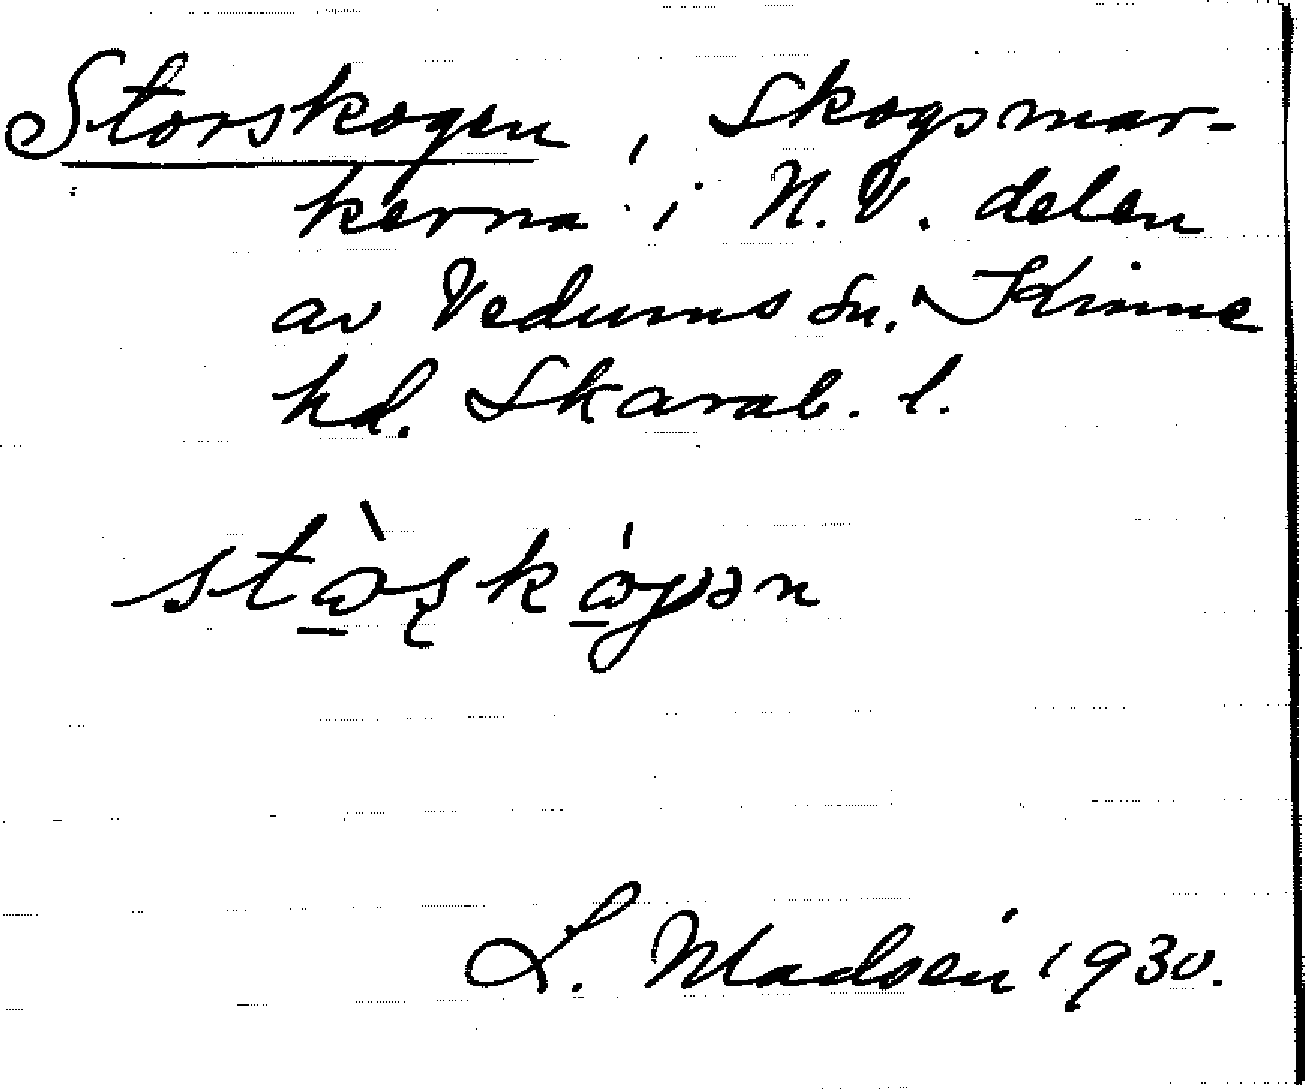 Storskogen, Skogsmar-
kerna i N.V. delen
av Vedums sn. Kinne
hd. Skarab. l.
L. Madsén 1930.